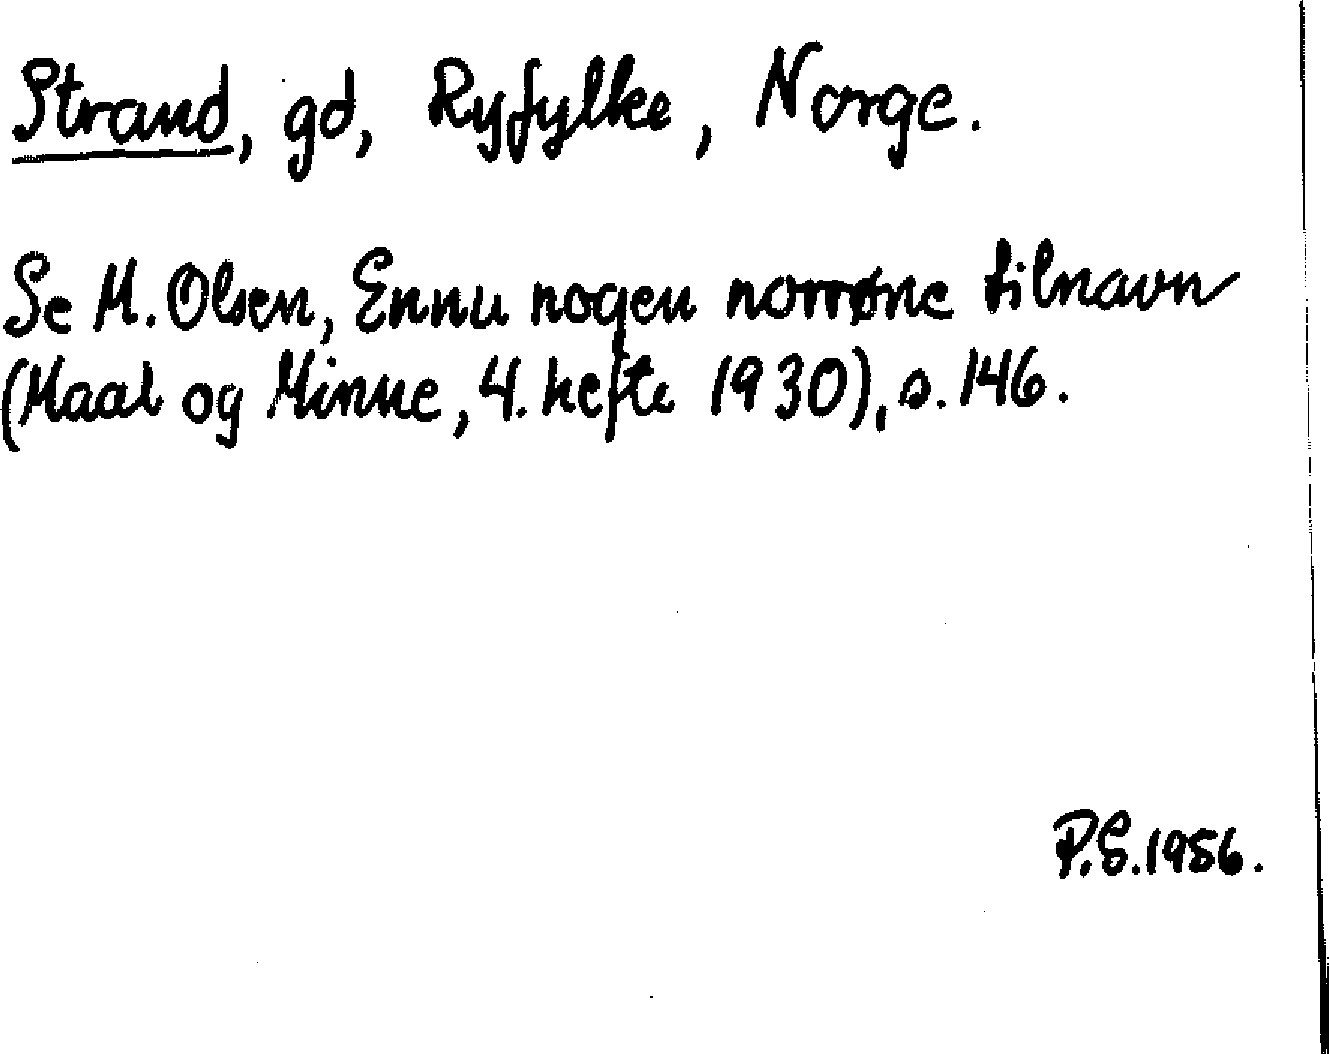 Strand, gd, Ryfylke, Norge.
Se M. Olsen, Ennu nogen norrøne tilnavn
(Maal og Minne, 4. hefte 1930), s. 146.
P.S. 1956.